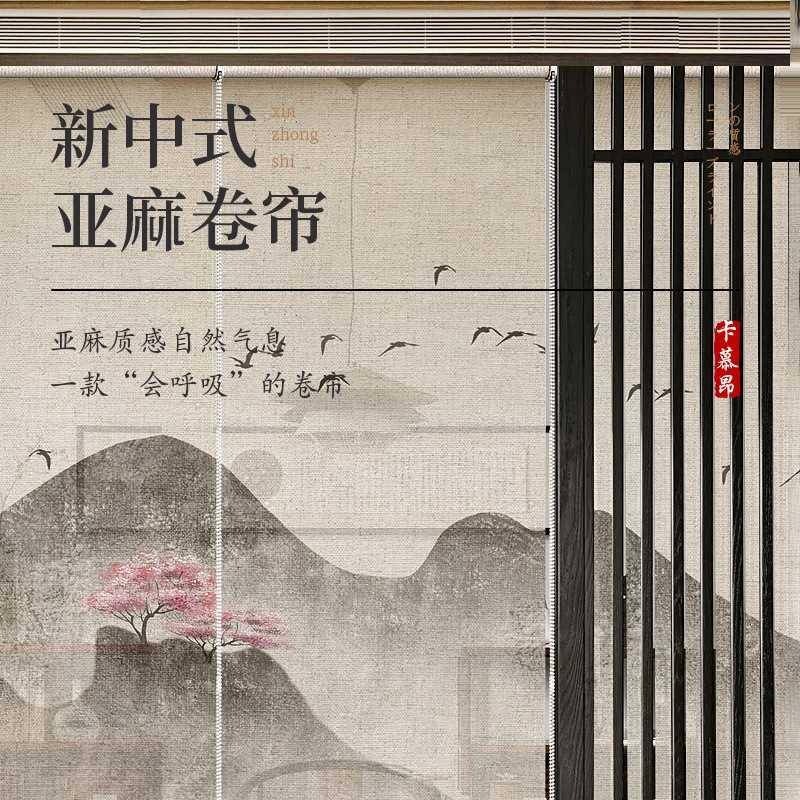 新中式
xin
zhong
shi
亚麻卷帘
亚麻质感自然气息
一款“会呼吸”的卷帘
卡慕昂
の質感